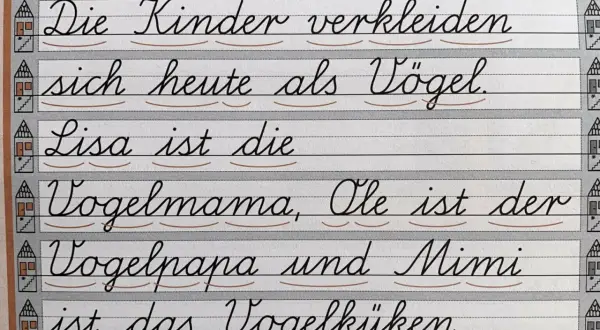 Die Kinder verkleiden
sich heute als Vögel.
Lisa ist die
Vogelmama, Ole ist der
Vogelpapa und Mimi
ist das Vogelküken.